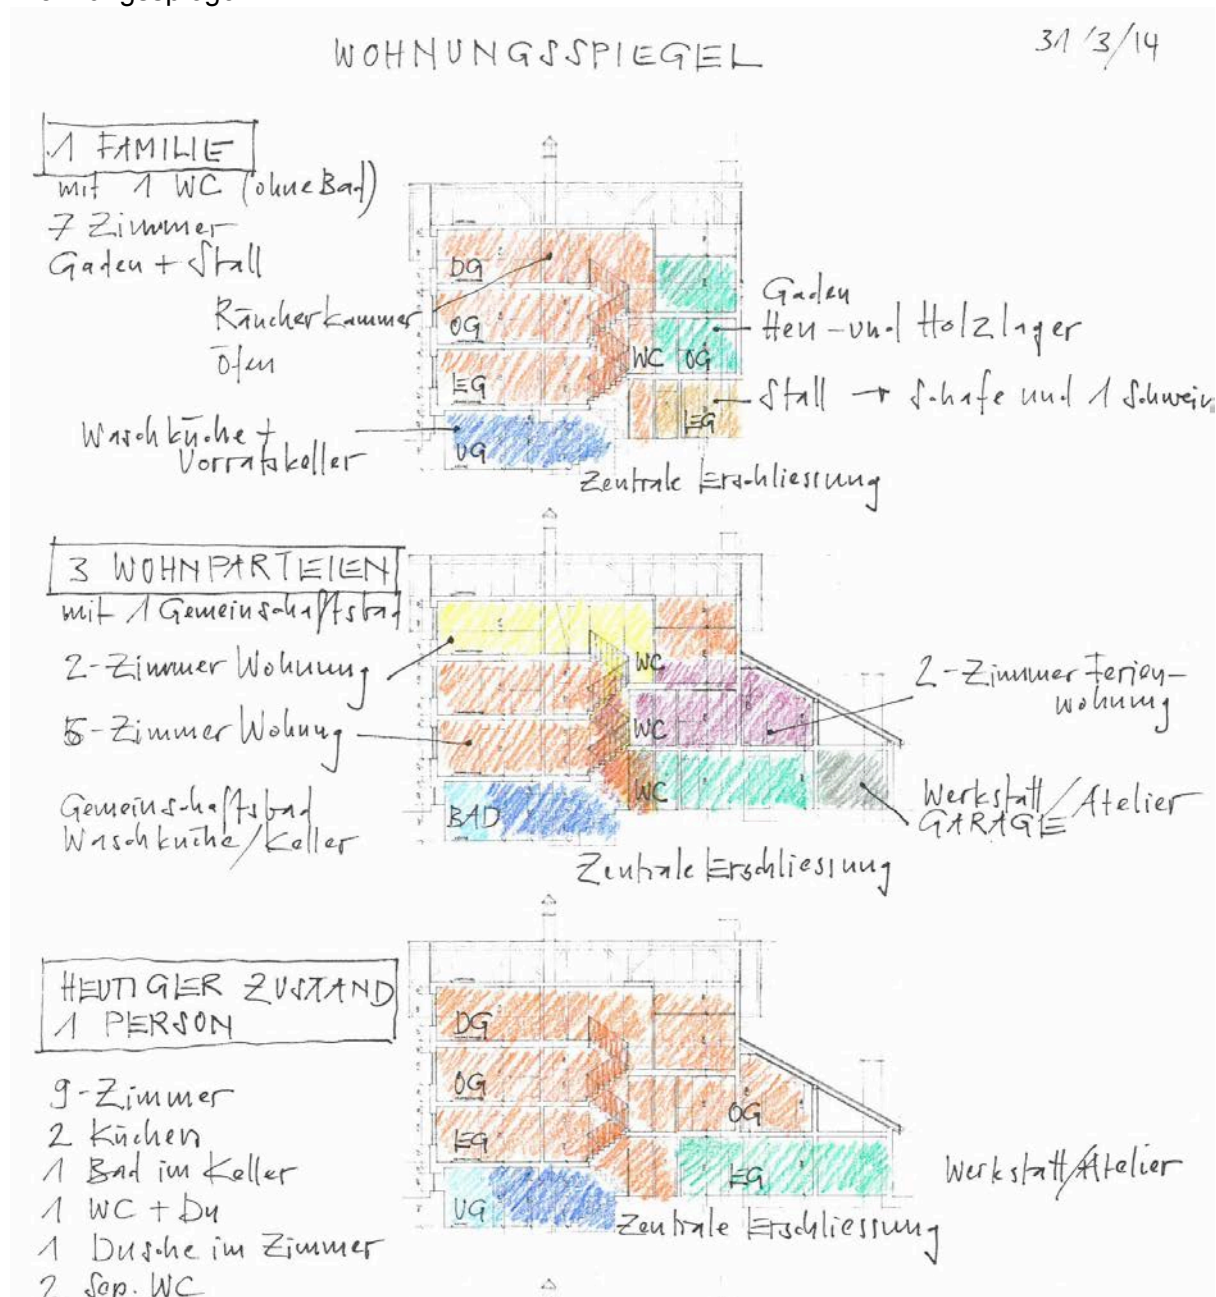 WOHNUNGSSPIEGEL
31/3/14
1 FAMILIE
mit 1 WC (ohne Bad)
7 Zimmer
Gaden + Stall
Räucherkammer
Öfen
Waschküche +
Vorratskeller
DG
OG
EG
UG
WC OG
EG
Gaden
Heu- und Holzlager
Stall → Schafe und 1 Schwein
Zentrale Erschliessung
3 WOHNPARTEIEN
mit 1 Gemeinschaftsbad
2-Zimmer Wohnung
5-Zimmer Wohung
Gemeinschaftsbad
Waschküche/Keller
WC
WC
WC
BAD
2-Zimmer Ferien-
wohnung
Werkstatt/Atelier
GARAGE
Zentrale Erschliessung
HEUTIGER ZUSTAND
1 PERSON
9-Zimmer
2 Küchen
1 Bad im Keller
1 WC + Du
1 Dusche im Zimmer
2 Sep. WC
DG
OG
EG
UG
OG
EG
Werkstatt/Atelier
Zentrale Erschliessung